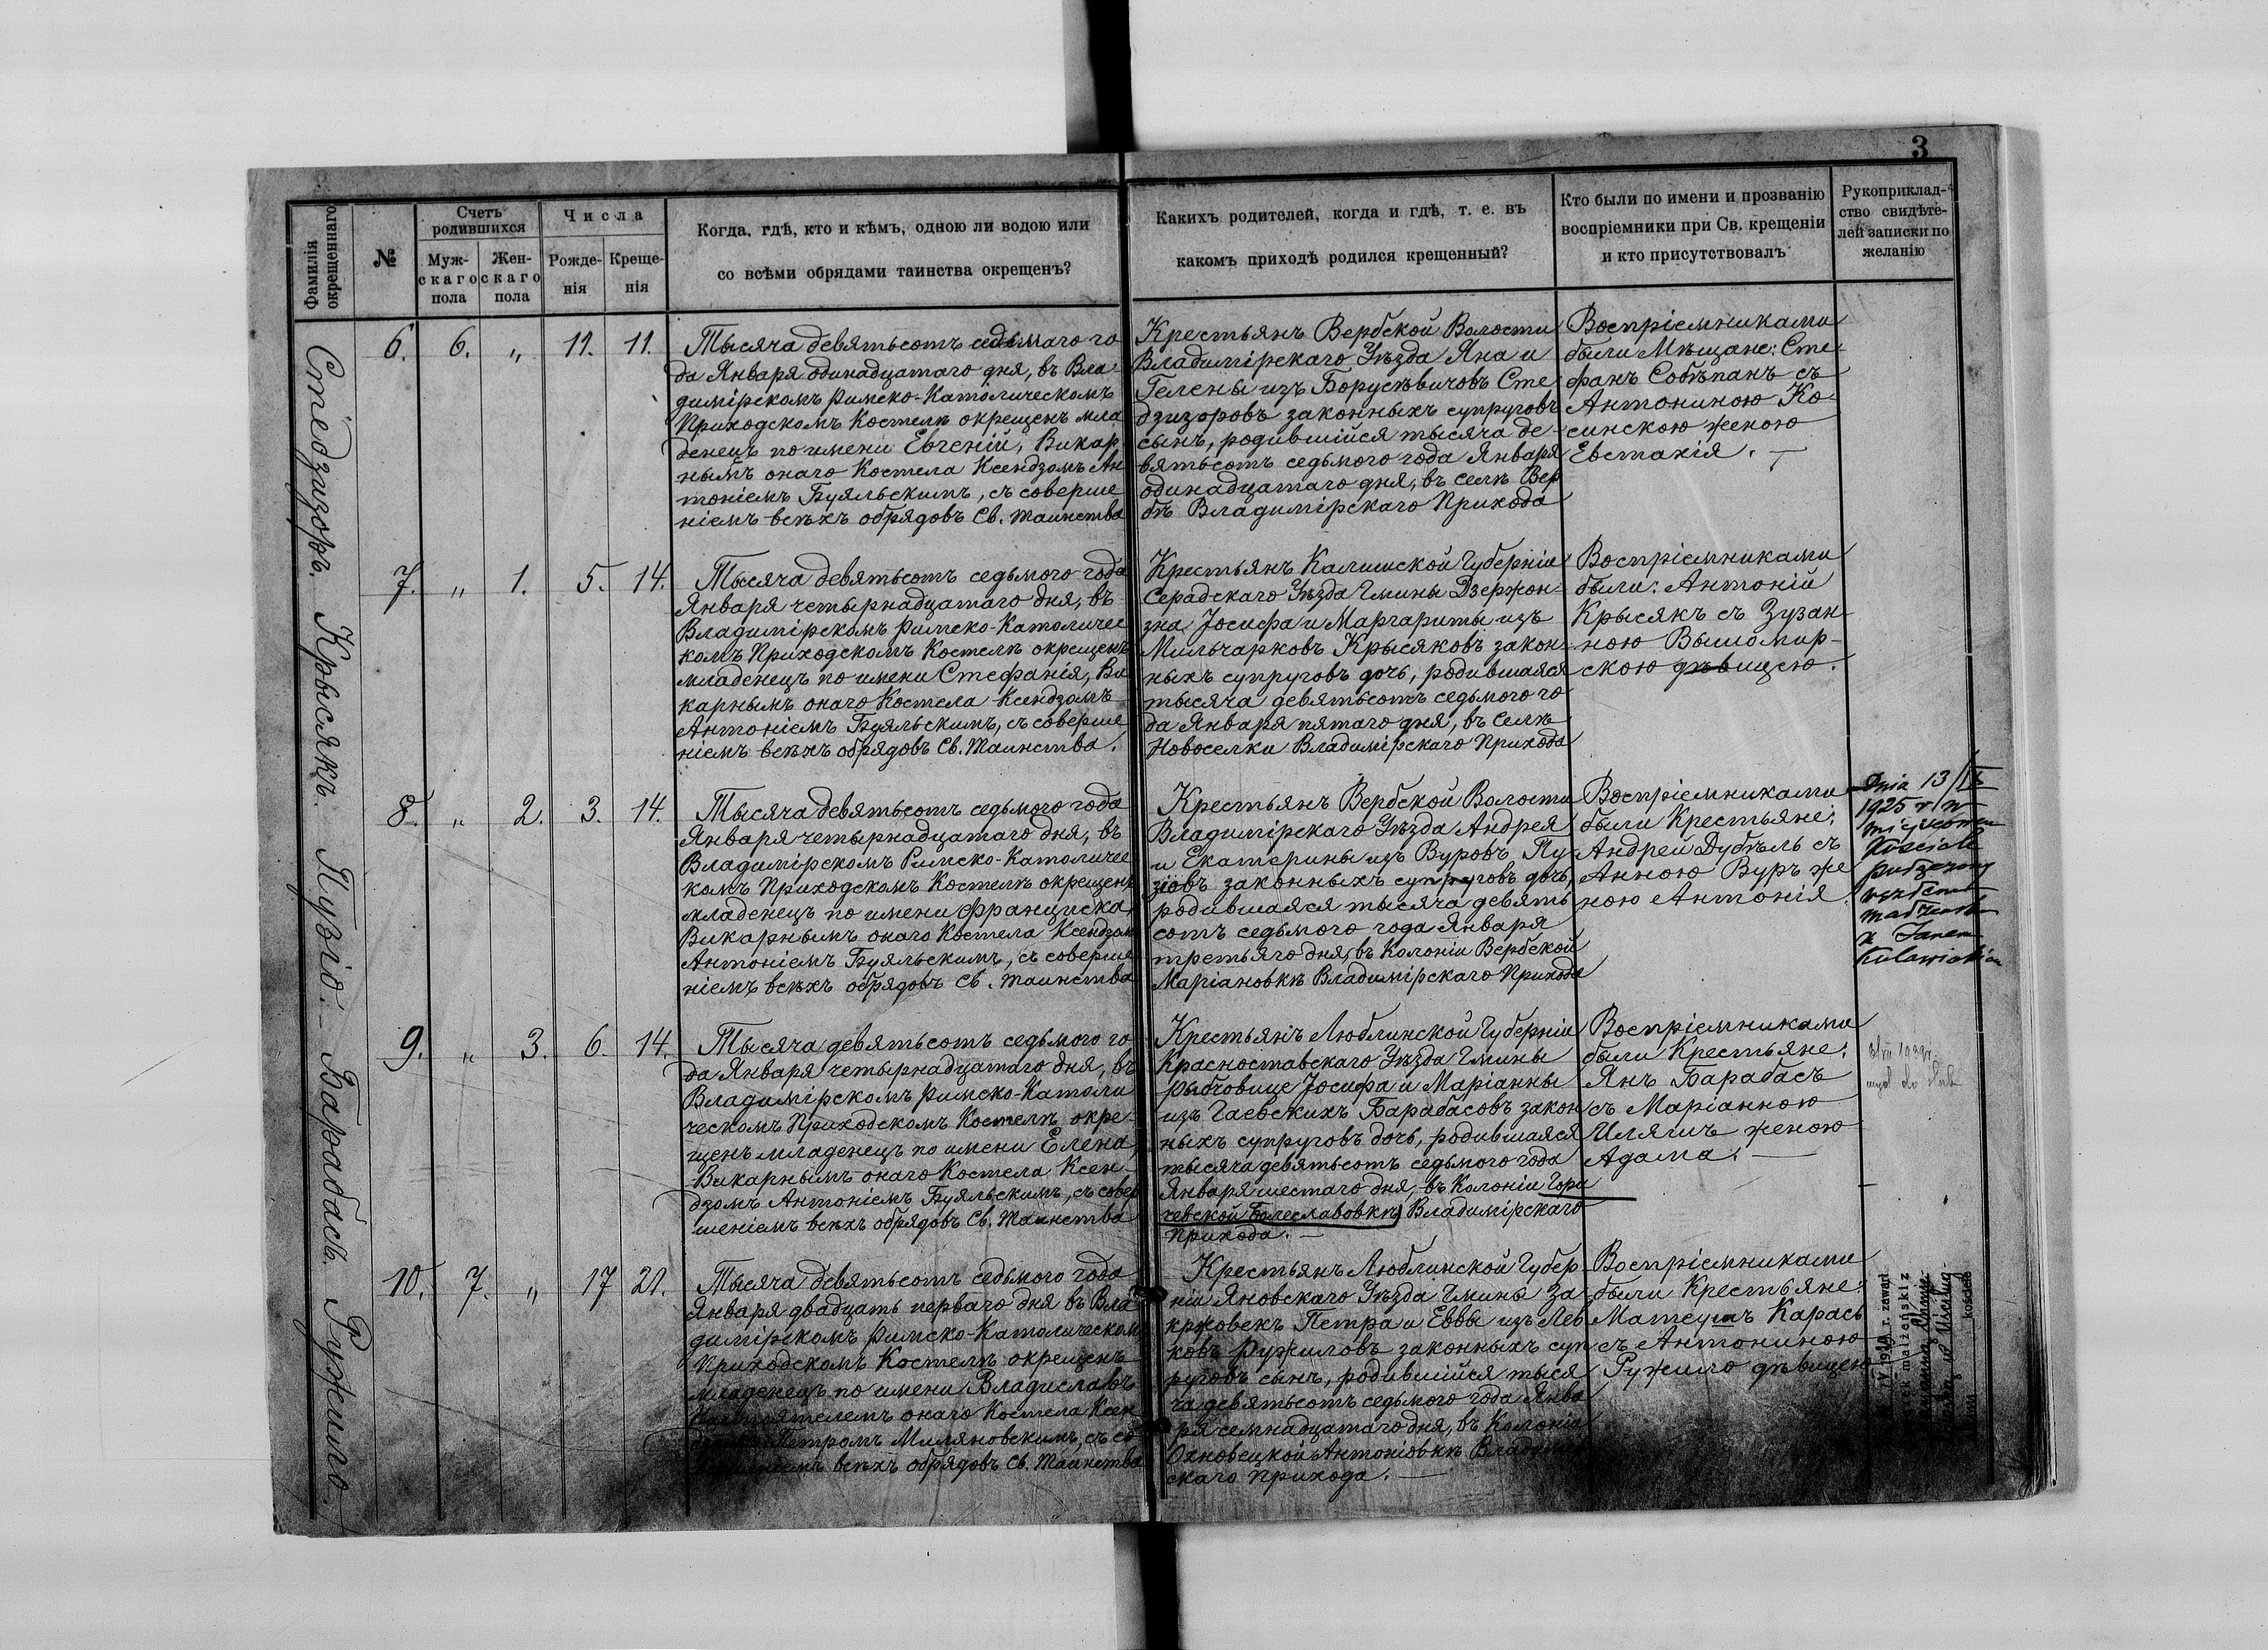 3
Фамилія окрещеннаго
№
Счетъ родившихся
Мужскаго пола
Женскаго пола
Числа
Рожденія
Крещенія
Когда, гдѣ, кто и кѣмъ, одною ли водою или
со всѣми обрядами таинства окрещенъ?
Какихъ родителей, когда и гдѣ, т. е. въ
какомъ приходѣ родился крещенный?
Кто были по имени и прозванію
воспріемники при Св. крещеніи
и кто присутствовалъ
Рукоприклад-
ство свидѣте-
лей записки по
желанію
6. 6. „ 11. 11.
Тысяча девятьсотъ седьмаго го
да Января одинадцатаго дня, въ Вла
димірскомъ Римско-Католическомъ
Приходскомъ Костелѣ окрещенъ мла
денецъ по имени Евгеній, Викар
нымъ онаго Костела Ксендзомъ Ан
тоніемъ Буяльскимъ, съ соверше
ніемъ всѣхъ обрядовъ Св. таинства
Крестьянъ Вербской Волости
Владимірскаго Уѣзда Яна и
Гелены изъ Борусѣвичовъ Сте
дзизоровъ законныхъ супруговъ
сынъ, родившійся тысяча де-
вятьсотъ седьмого года Января
одинадцатаго дня, въ селѣ Вер
бѣ Владимірскаго Прихода
Воспріемниками
были Мѣщане: Сте-
фанъ Собѣпанъ съ
Антониною Ко-
синскою женою
Евстахія.
Стедзизоръ.
7. „ 1. 5. 14.
Тысяча девятьсотъ седьмого года
Января четырнадцатаго дня, въ
Владимірскомъ Римско-Католичес
комъ Приходскомъ Костелѣ окрещенъ
младенецъ по имени Стефанія, Ви
карнымъ онаго Костела Ксендзомъ
Антоніемъ Буяльскимъ, съ соверше
ніемъ всѣхъ обрядовъ Св. Таинства.
Крестьянъ Калишской Губерніи
Серадскаго Уѣзда Гмины Дзержон-
зна Іосифа и Маргариты изъ
Мильчарковъ Крысяковъ закон-
ныхъ супруговъ дочь, родившаяся
тысяча девятьсотъ седьмого го
да Января пятаго дня, въ селѣ
Новоселки Владимірскаго Прихода
Воспріемниками
были: Антоній
Крысякъ съ Зузан-
ною Вышомир-
скою дѣвицею.
Крысякъ.
8. „ 2. 3. 14.
Тысяча девятьсотъ седьмого года
Января четырнадцатаго дня, въ
Владимірскомъ Римско-Католичес
комъ Приходскомъ Костелѣ окрещенъ
младенецъ по имени Франциска,
Викарнымъ онаго Костела Ксендзом
Антоніемъ Буяльскимъ, съ соверше
ніемъ всѣхъ обрядовъ Св. таинства
Крестьянъ Вербской Волости
Владимірскаго Уѣзда Андрея
и Екатерины изъ Вуровъ Пу-
зіовъ законныхъ супруговъ дочь,
родившаяся тысяча девять
сотъ седьмого года Января
третьяго дня, въ Колоніи Вербской
Маріановкѣ Владимірскаго Прихода
Воспріемниками
были Крестьяне:
Андрей Дубѣль съ
Анною Вуръ же
ною Антонія.
Dnia 13/IX
1925 r. w
miejscowym
Kościele
z Janem
Пузіо.
9. „ 3. 6. 14.
Тысяча девятьсотъ седьмого го
да Января четырнадцатаго дня, въ
Владимірскомъ Римско-Католи
ческомъ Приходскомъ Костелѣ окре-
щенъ младенецъ по имени Елена,
Викарнымъ онаго Костела Ксен-
дзомъ Антоніемъ Буяльскимъ, съ совер
шеніемъ всѣхъ обрядовъ Св. Таинства
Крестьянъ Люблинской Губерніи
Красноставскаго Уѣзда Гмины
Рыбчовице Іосифа и Маріанны
изъ Гаевскихъ Барабасовъ закон
ныхъ супруговъ дочь, родившаяся
тысяча девятьсотъ седьмого года
Января шестаго дня, въ Колоніи Гори
чевской Болеславовкѣ Владимірскаго
Прихода.
Воспріемниками
были Крестьяне:
Янъ Барабасъ
съ Маріанною
Илягичъ женою
Адама.
Барабасъ.
10. 7. „ 17 21.
Тысяча девятьсотъ седьмого года
Января двадцать перваго дня въ Вла
димірскомъ Римско-Католическом
Приходскомъ Костелѣ окрещенъ
младенецъ по имени Владиславъ
Настоятелемъ онаго Костела Ксен
Петромъ Миляновскимъ, съ со
всѣхъ обрядовъ Св. Таинства
Крестьянъ Люблинской Губер
ніи Яновскаго Уѣзда Гмины За-
кржовекъ Петра и Еввы изъ Лев
ковъ Ружиловъ законныхъ суп
руговъ сынъ, родившійся тыся
ча девятьсотъ седьмого года Янва
ря семнадцатаго дня, въ Колоніи
Охновецкой Антоніовкѣ Владимір
скаго Прихода.
Воспріемниками
были Крестьяне:
Матеушъ Карась
съ Антониною
Ружило дѣвицею
r. zawarł
małżeński z
Ружило.